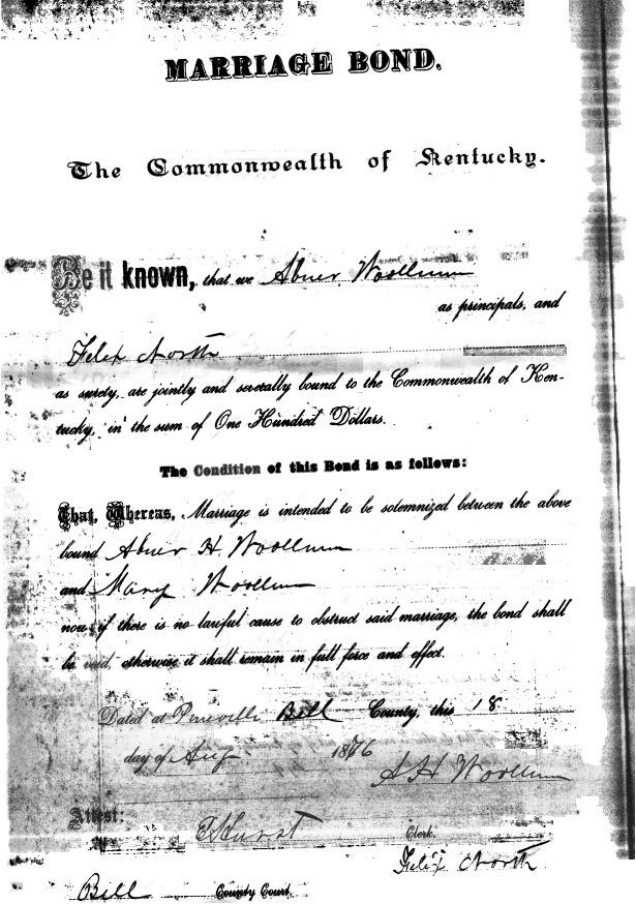 MARRIAGE BOND.
The Commonwealth of Kentucky.
Be it known, that we Abner Woollum
as principals, and
Felix North
as surety, are jointly and severally bound to the Commonwealth of Ken-
tucky, in the sum of One Hundred Dollars.
The Condition of this Bond is as follows:
That, Whereas, Marriage is intended to be solemnized between the above
bound Abner H. Woollum
and Mary Woollum
now if there is no lawful cause to obstruct said marriage, the bond shall
be void, otherwise it shall remain in full force and effect.
Dated at Pineville Bell County, this 18
day of Aug 1876
A H Woollum
Attest:
Hurst Clerk
Felix North
Bell County Court.